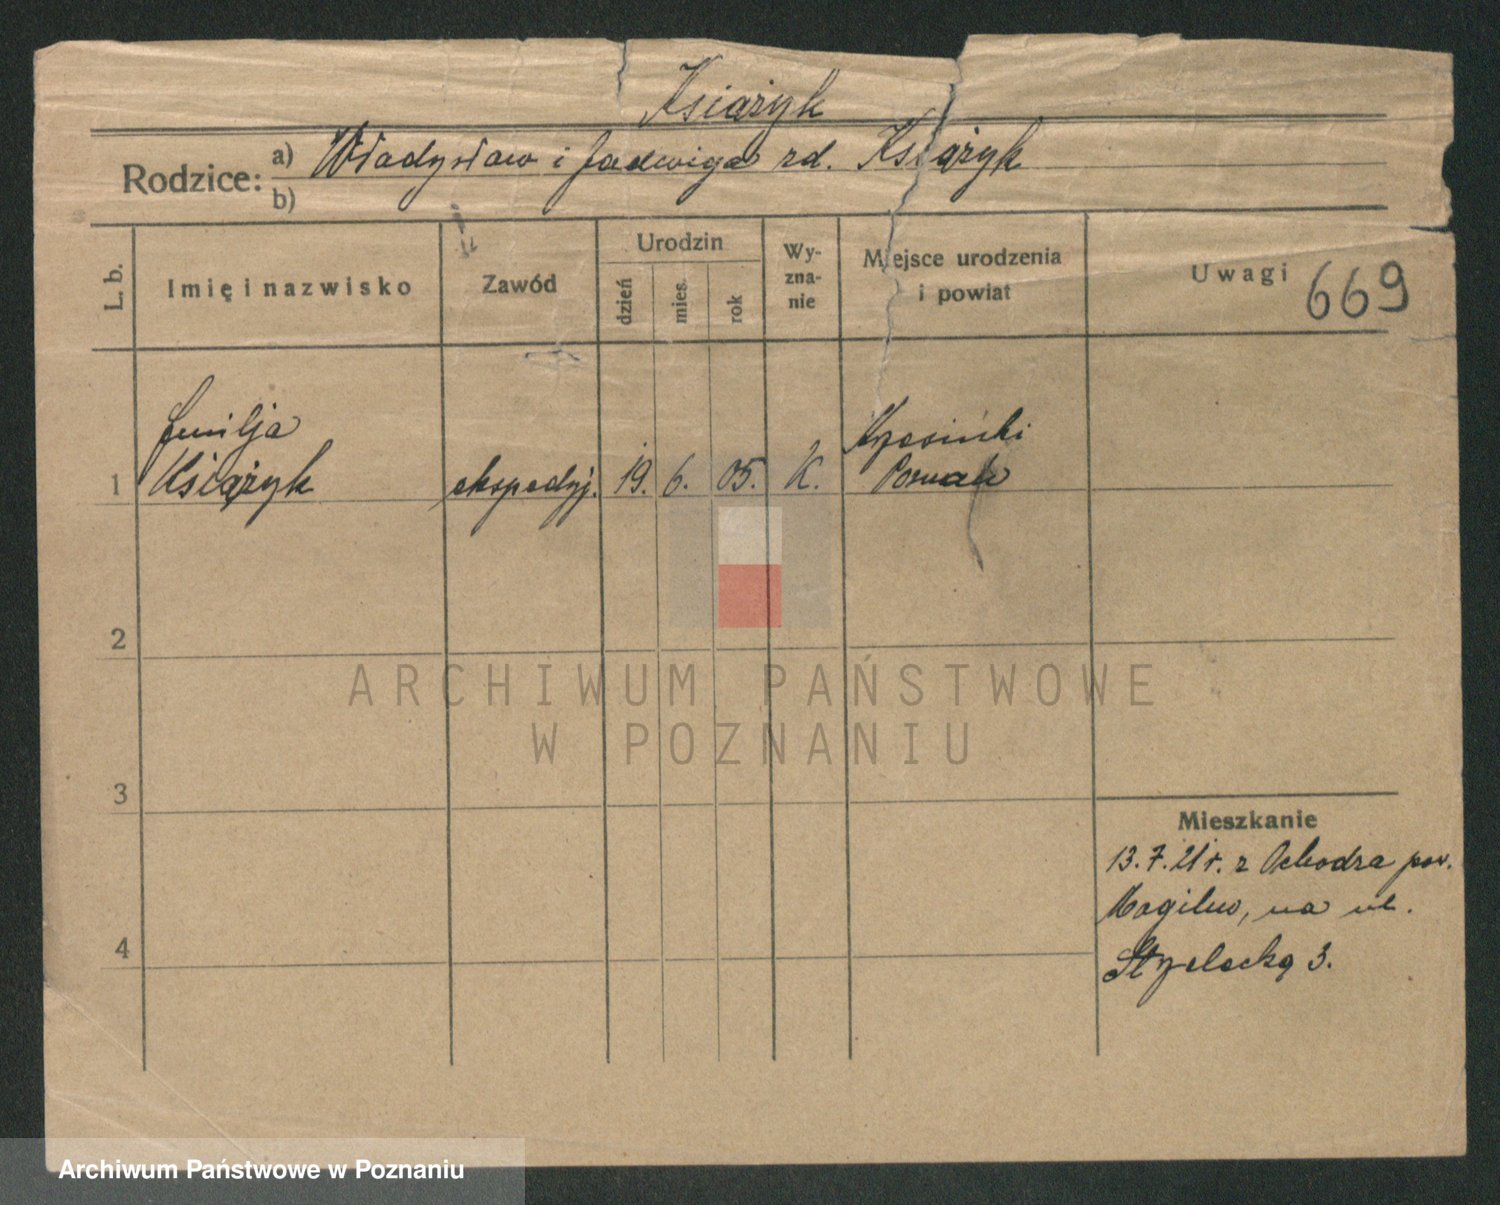 Książyk
Rodzice: a) Władysław i Jadwiga rd. Książyk
b)
L. b. Imię i nazwisko Zawód Urodzin dzień mies. rok Wyzna-nie Miejsce urodzenia i powiat Uwagi 669
Emilja
1 Książyk ekspedyj. 19. 6. 05. K. Krzesinki
Poznań
2
ARCHIWUM PAŃSTWOWE
W POZNANIU
3
Mieszkanie
13.7.21 r. z Ochodza pow.
Mogilno, na ul.
4 Strzelecką 3.
Archiwum Państwowe w Poznaniu